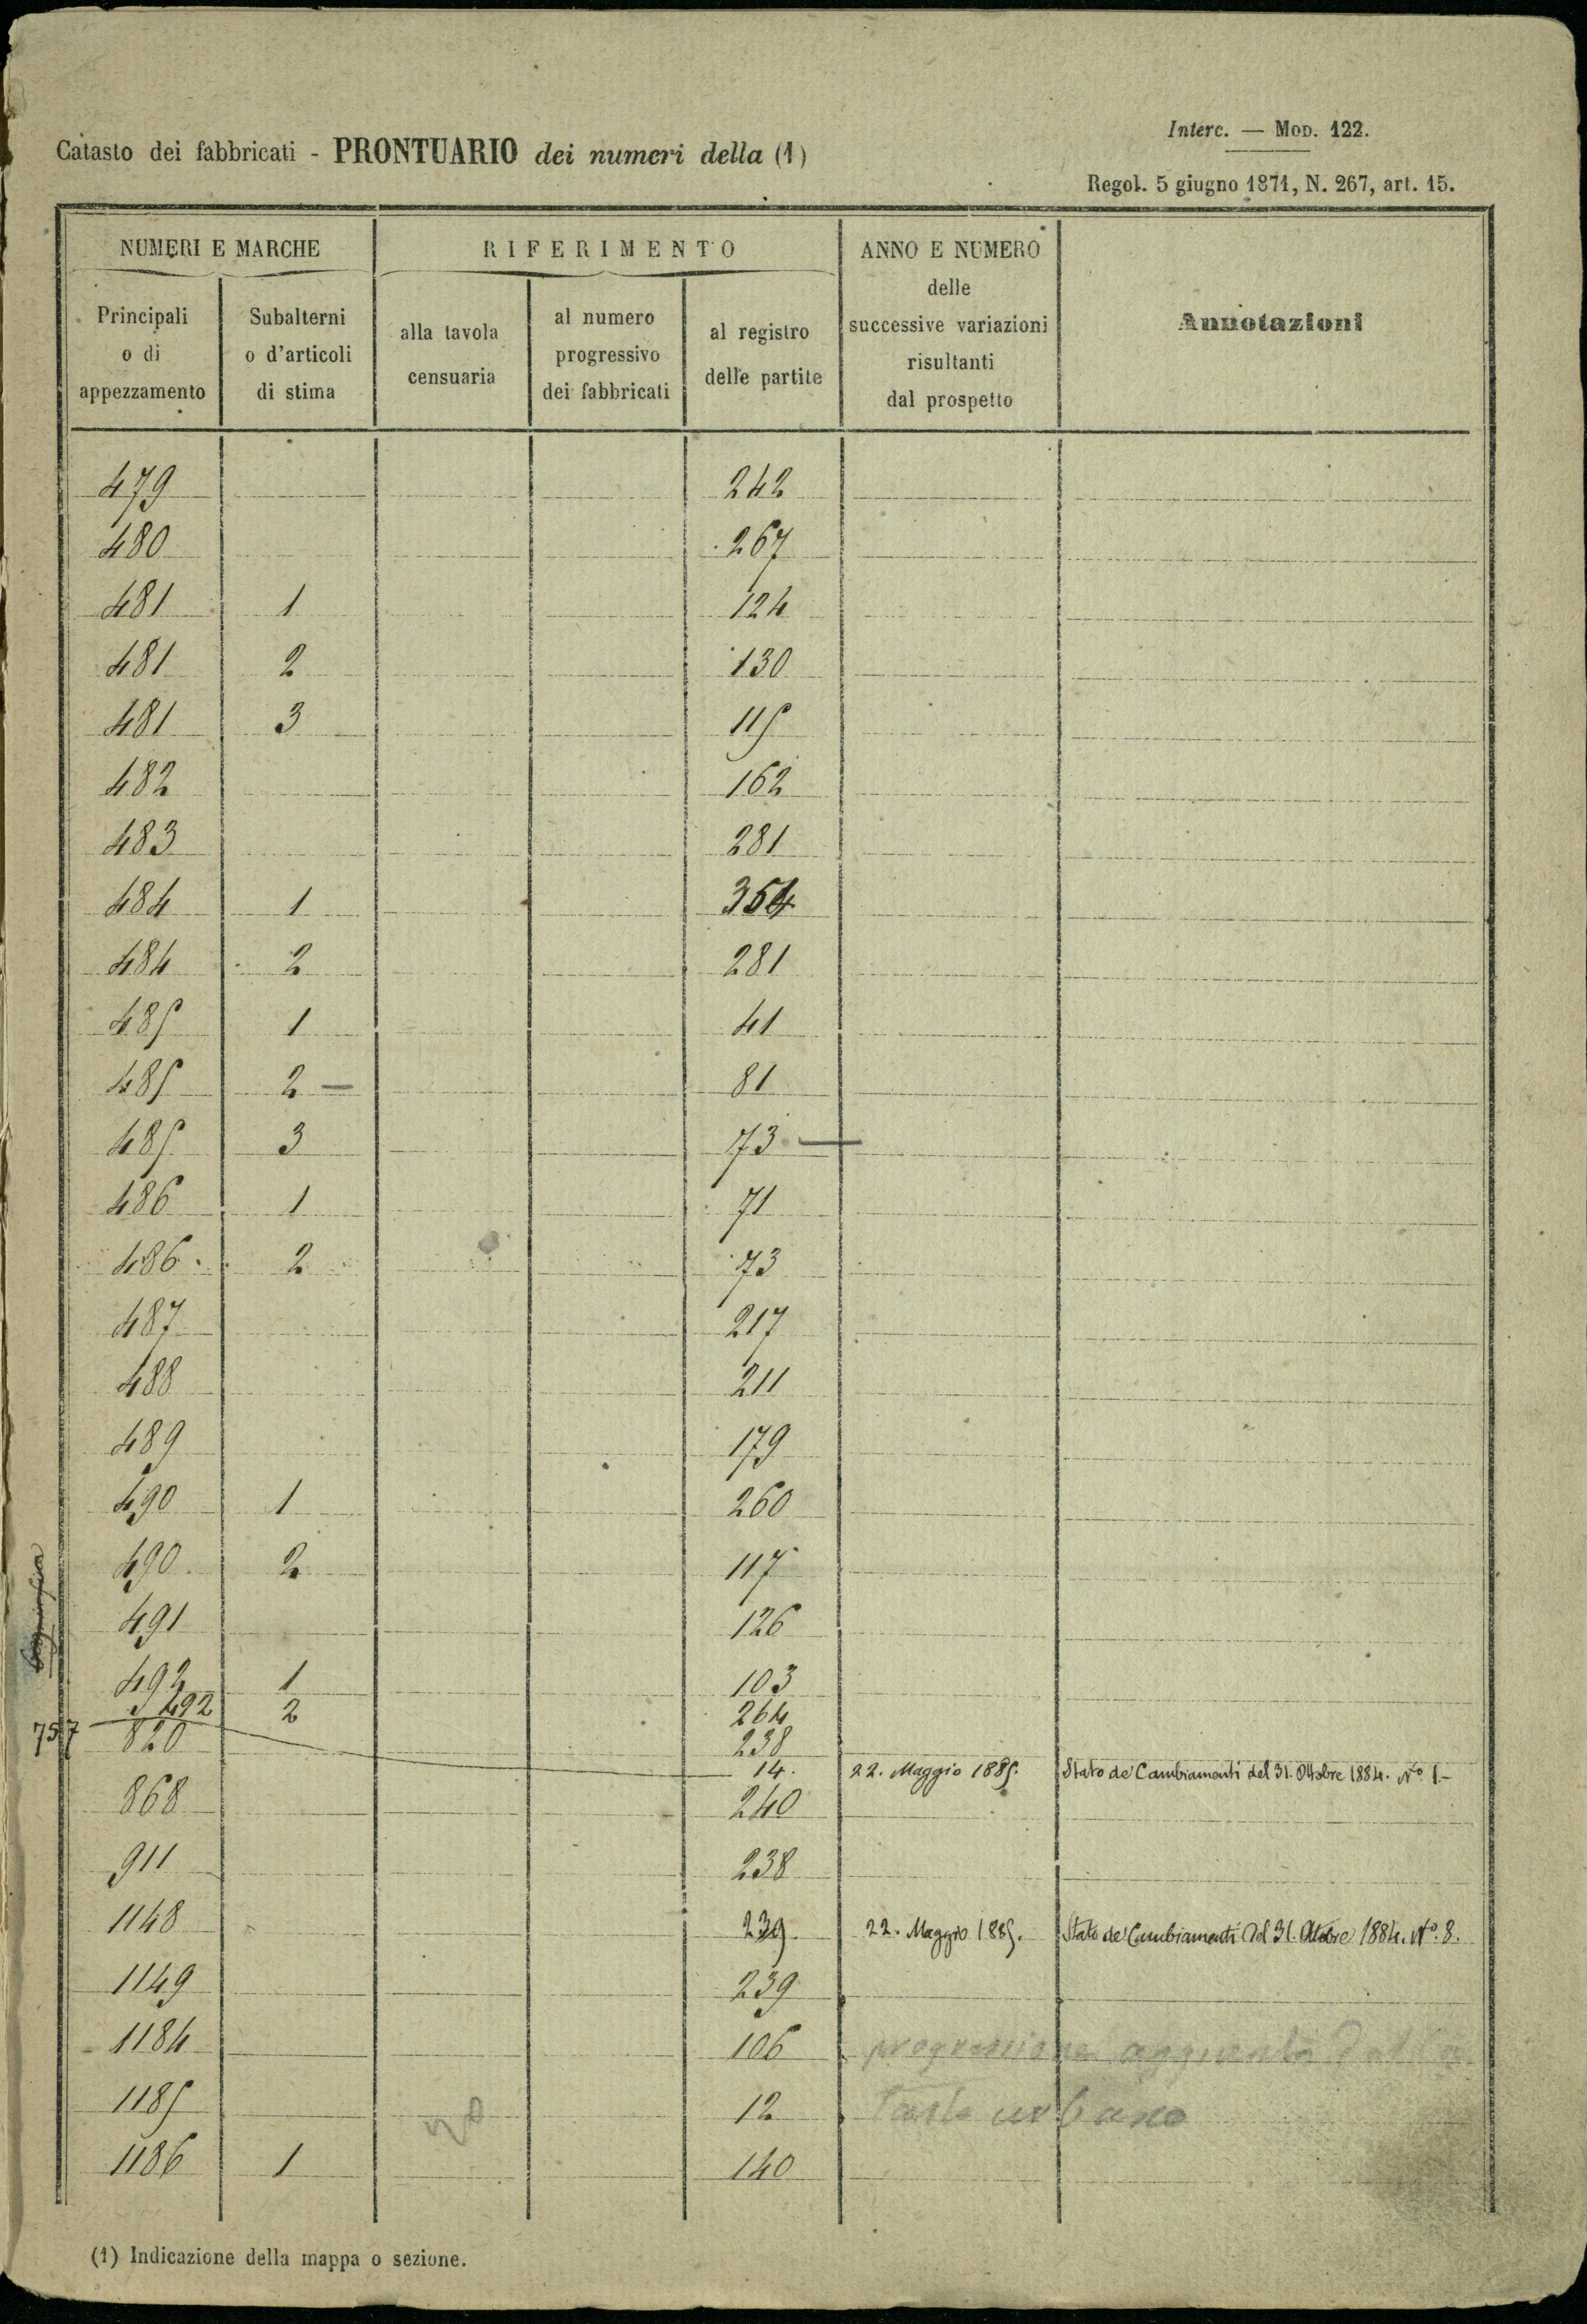 Interc. — Mod. 122.
Catasto dei fabbricati - PRONTUARIO dei numeri della (1)
Regol. 5 giugno 1871, N. 267, art. 15.
NUMERI E MARCHE
RIFERIMENTO
ANNO E NUMERO
delle
successive variazioni
risultanti
dal prospetto
Annotazioni
Principali
o di
appezzamento
Subalterni
o d'articoli
di stima
alla tavola
censuaria
al numero
progressivo
dei fabbricati
al registro
delle partite
479 242
480 267
481 1 124
481 2 130
481 3 115
482 162
483 281
484 1 354
484 2 281
485 1 41
485 2 — 81
485 3 73 —
486 1 71
486 2 73
487 217
488 211
489 179
490 1 260
490 2 117
491 126
492 1 103
492 2 264
820 238
757 14. 22. Maggio 1885. Stato de' Cambiamenti del 31. Ottobre 1884. No. 1.-
868 240
911 238
1148 239. 22. Maggio 1885. Stato de' Cambiamenti del 31. Ottobre 1884. No. 8.
1149 239
1184 106 progressione aggiunta dalla
1185 12 urbano
1186 1 140
(1) Indicazione della mappa o sezione.